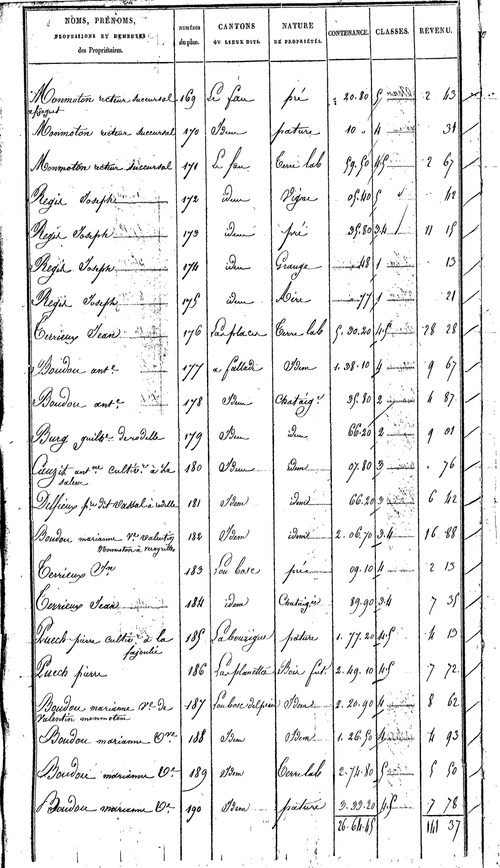 NOMS, PRÉNOMS, PROFESSIONS ET DEMEURES des Propriétaires. NUMÉROS du plan. CANTONS OU LIEUX DITS. NATURE DE PROPRIÉTÉS. CONTENANCE. CLASSES. REVENU.
Monmoton recteur succursal 169 Le fau pré 20.80 5 2 43
Monmoton recteur succursal 170 Idem pature 10 4 31
Monmoton recteur succursal 171 Le fau Terre lab 59.50 4 5 2 67
Regis Joseph 172 idem Vigne 05.40 5 42
Regis Joseph 173 idem pré 35.80 3 4 11 15
Regis Joseph 174 idem Grange 48 1 13
Regis Joseph 175 idem Aire 77 1 21
Terrieux Jean 176 Las places Terre lab 5.30.20 4.5 28 28
Boudou ant.e 177 Idem 1.38.10 4 9 67
Boudou ant.e 178 Idem Chataig.r 35.80 2 4 87
Burg 179 Idem idem 66.20 2 9 01
Cauzit ant.ne cultiv.r à 180 Idem idem 07.80 3 76
Diffieux p.re dit Vassal à 181 Idem idem 66.20 3 6 42
Boudou marianne V.e Valentin 182 Idem idem 2.06.70 3.4 16 88
Monmoton à
Terrieux 183 Lou bosc pré 09.10 4 2 13
Terrieux Jean 184 idem 89.90 3.4 7 35
Puech pierre cultiv.r de la 185 La bouzigue pature 1.77.20 4.5 4 13
Puech pierre 186 Las planettes Bois fut. 2.49.10 4.5 7 72
Boudou marianne V.e de 187 Idem 2.20.90 4 8 62
Valentin monmoton
Boudou marianne V.ve 188 Idem Idem 1.26.50 4 4 93
Boudou marianne V.e 189 Idem Terre lab 2.74.80 5 5 50
Boudou marianne V.e 190 Idem pature 3.33.20 4.5 7 78
26.64.45 141 37